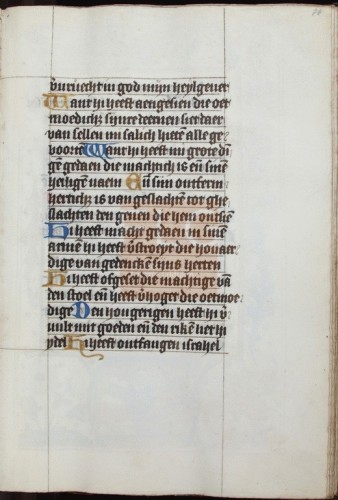 v̄vruecht in god mijn heylgever
Want hi heeft aengesien die oet
moedich̄ sijnre deernen siet daer
van sellen mi salich hietē alle ge
voortē Want hi heeft mi grote dī
gē gedaen die machtich is eñ sinē
heiligē naem Eñ sijn ontferm
herticḥ is van geslachtē tot ghe
slachten den genen die hem ontsiē
Hi heeft macht gedaen in sinē
armē hi heeft v̄stroeyt die houaer
dige van gedencken sijns herten
Hi heeft ofgeset die machtige vā
den stoel eñ heeft v̄hoget die oetmoe
dige Den hongerigen heeft hi v̄
vult mit goeden eñ den rikē liet hi
ydel Hi heeft ontfangen israhel